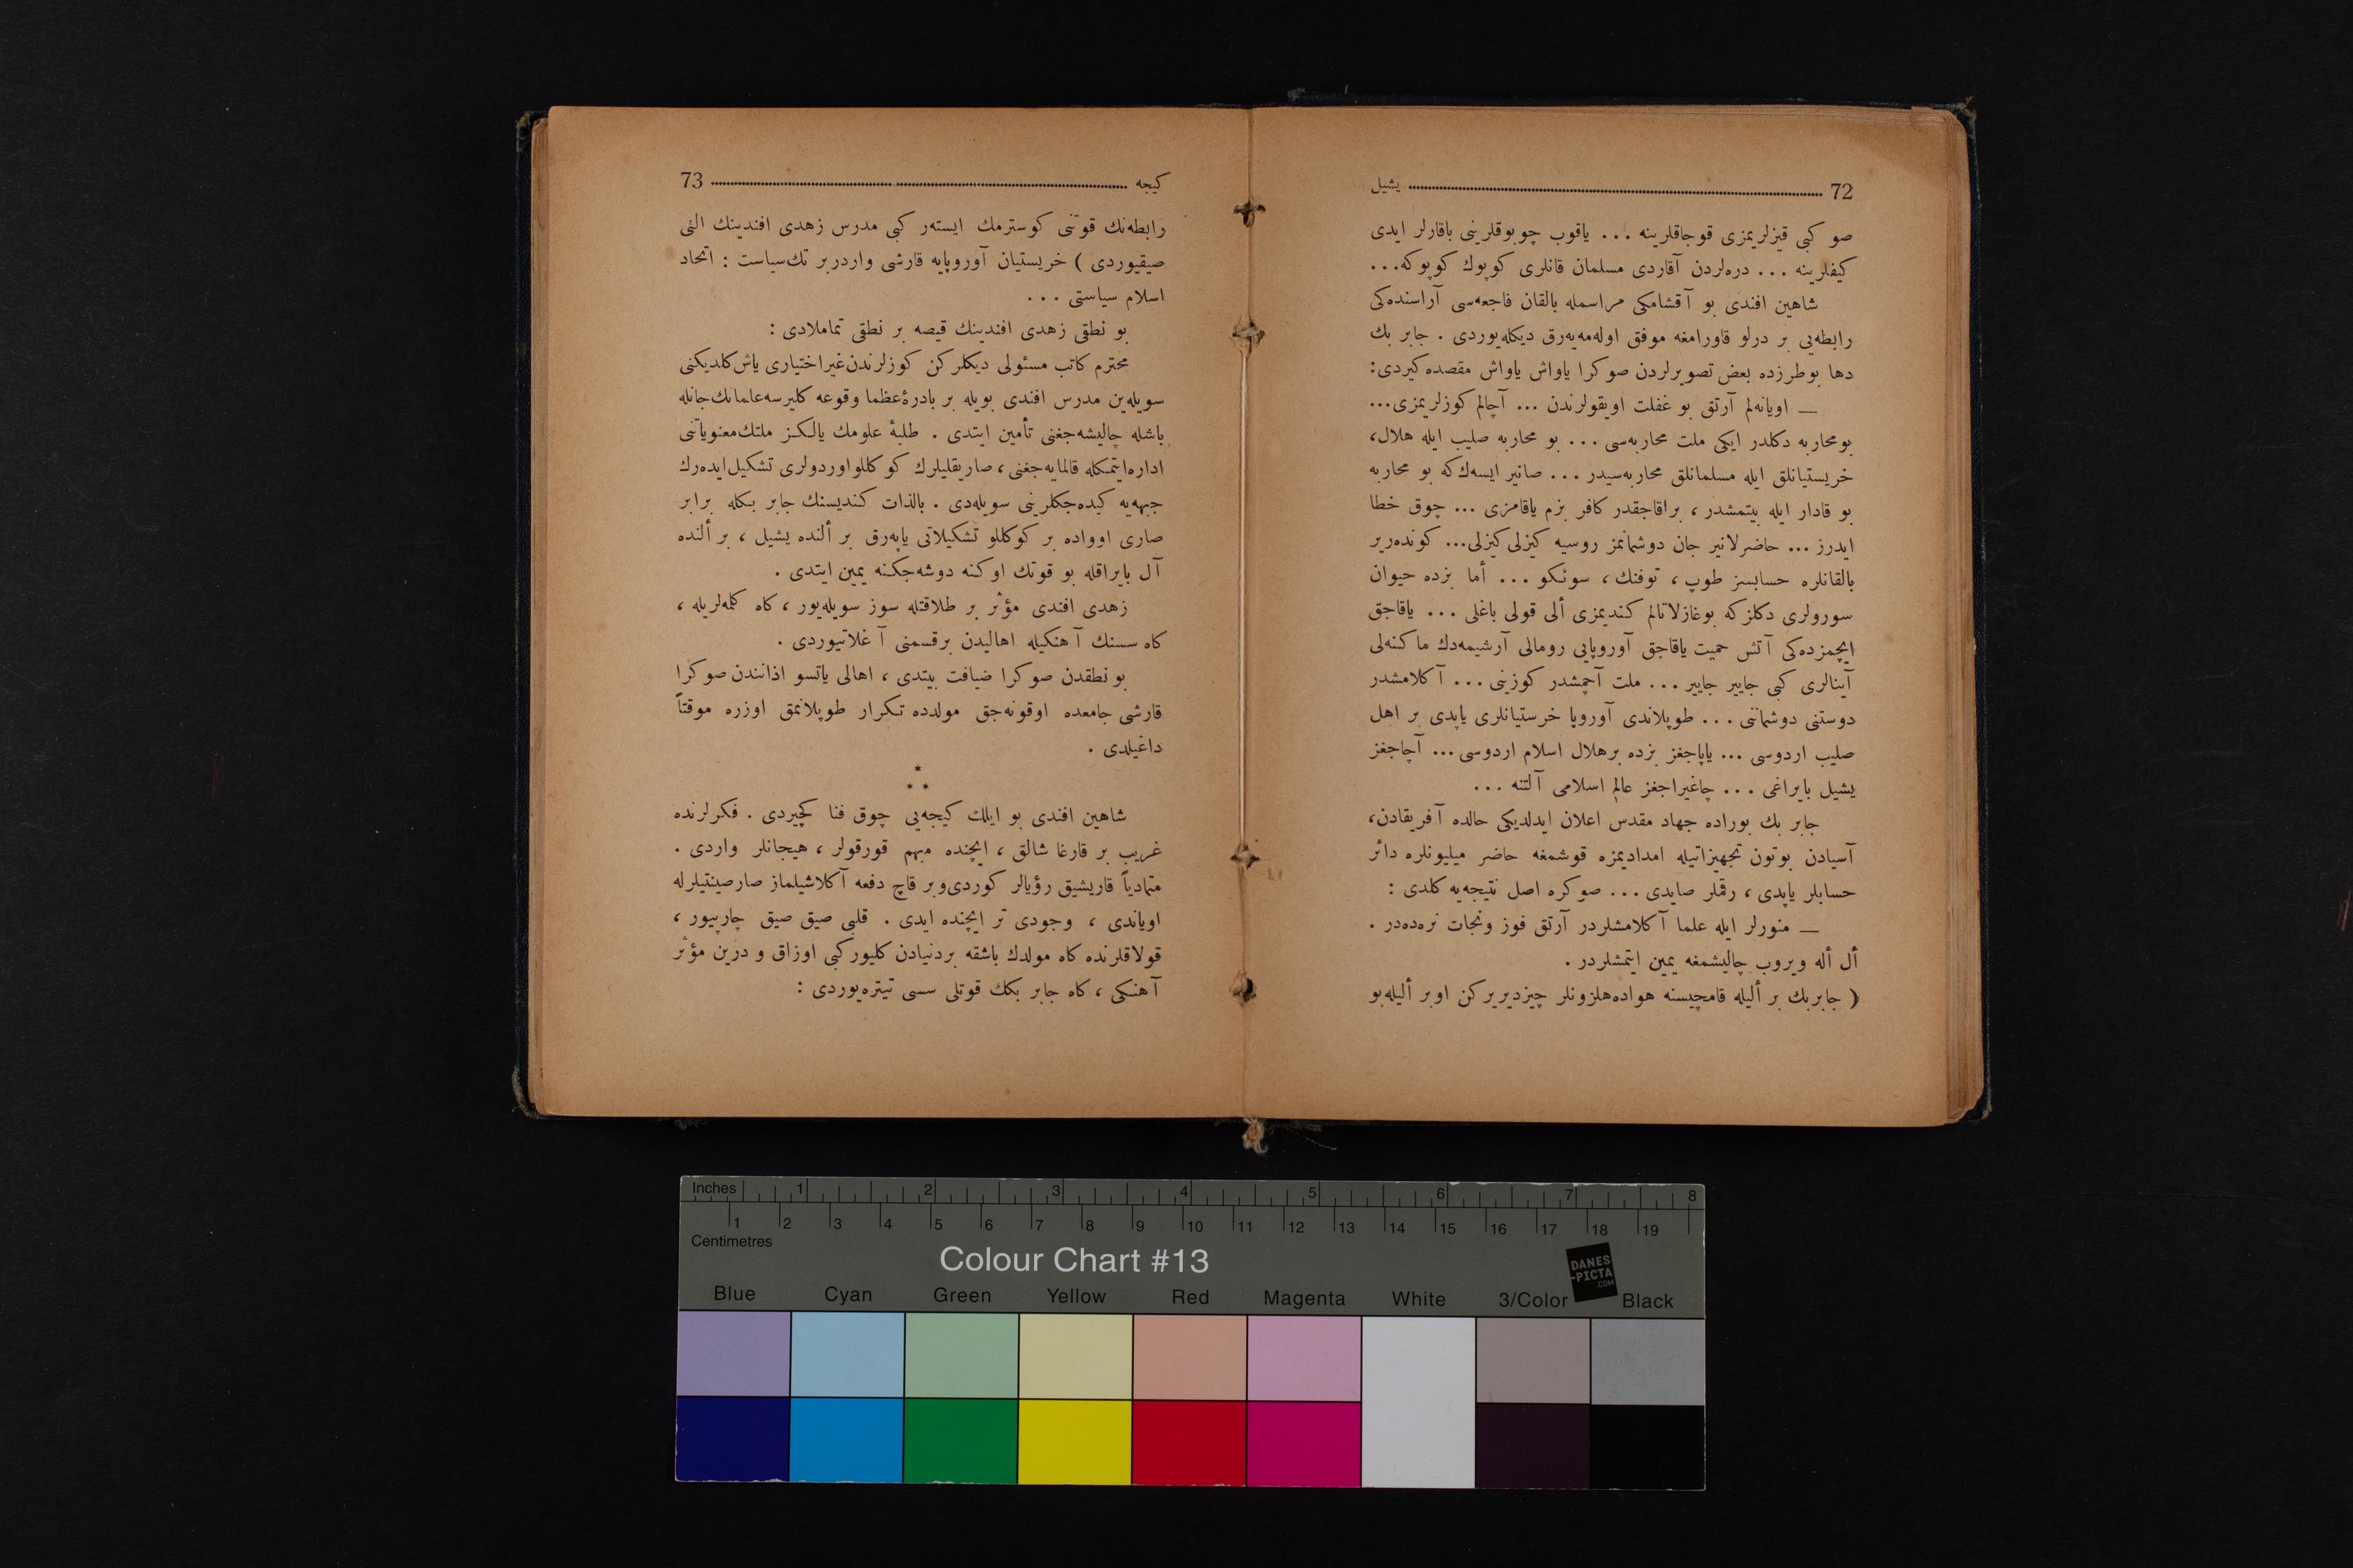 72 یشیل
صو کبی قیزلریمزی قوجاقلرینه ... یاقوب چوبوقلرینی باقارلر ایدی
کیفلرینه ... دره‌لردن آقاردی مسلمان قانلری کوپوك کوپوکه...
شاهین افندی بو آقشامکی مراسمله بالقان فاجعه‌سی آراسنده‌کی
رابطه‌یی بر درلو قاورامغه موفق اوله‌مه‌یه‌رق دیکله‌یوردی . جابر بك
دها بوطرزده بعض تصویرلردن صوکرا یاواش یاواش مقصده کیردی:
— اویانه‌لم آرتق بو غفلت اویقولرندن ... آچالم کوزلریمزی...
بومحاربه دکلدر ایکی ملت محاربه‌سی ... بو محاربه صلیب ایله هلال،
خریستیانلق ایله مسلمانلق محاربه‌سیدر ... صانیر ایسه‌ك که بو محاربه
بو قادار ایله بیتمشدر ، براقاجقدر کافر بزم یاقامزی ... چوق خطا
ایدرز ... حاضرلانیر جان دوشمانمز روسیه کیزلی کیزلی... کونده‌ریر
بالقانلره حسابسز طوپ ، توفنك ، سونکو ... أما بزده حیوان
سورولری دکلز که بوغازلاتالم کندیمزی ألی قولی باغلی ... یاقاجق
ایچمزده‌کی آتش حمیت یاقاجق آوروپایی رومالی آرشیمه‌دك ماکنه‌لی
آینالری کبی جاییر جاییر ... ملت آچمشدر کوزینی ... آکلامشدر
دوستنی دوشماننی ... طوپلاندی آوروپا خرستیانلری یاپدی بر اهل
صلیب اردوسی ... یاپاجغز بزده برهلال اسلام اردوسی ... آچاجغز
یشیل بایراغی ... چاغیراجغز عالم اسلامی آلتنه ...
جابر بك بوراده جهاد مقدس اعلان ایدلدیکی حالده آفریقادن،
آسیادن بوتون تجهیزاتیله امدادیمزه قوشمغه حاضر میلیونلره دائر
حسابلر یاپدی ، رقملر صایدی ... صوکره اصل نتیجه‌یه کلدی :
— منورلر ایله علما آکلامشلردر آرتق فوز ونجات نره‌ده‌در .
أل أله ویروب چالیشمغه یمین ایتمشلردر .
( جابربك بر ألیله قامچیسنه هواده‌هلزونلر چیزدیریرکن اوبر ألیله‌بو
کیجه 73
رابطه‌نك قوتنی کوسترمك ایسته‌ر کبی مدرس زهدی افندینك النی
صیقیوردی ) خریستیان آوروپایه قارشی واردربر تك‌سیاست : اتحاد
اسلام سیاستی ...
بو نطقی زهدی افندینك قیصه بر نطقی تماملادی :
محترم کاتب مسئولی دیکلرکن کوزلرندن‌غیراختیاری یاش‌کلدیکنی
سویله‌ین مدرس افندی بویله بر بادرهٔ‌عظما وقوعه کلیرسه‌علمانك‌جانله
باشله چالیشه‌جغنی تأمین ایتدی . طلبهٔ علومك یالکز ملتك‌معنویاتنی
اداره‌ایتمکله قالمایه‌جغنی ، صاریقلیلرك کوکللواوردولری تشکیل‌ایده‌رك
جبهه‌یه کیده‌جکلرینی سویله‌دی . بالذات کندیسنك جابر بکله برابر
صاری اوواده بر کوکللو تشکیلاتی یاپه‌رق بر ألنده یشیل ، بر ألنده
آل بایراقله بو قوتك اوکنه دوشه‌جکنه یمین ایتدی .
زهدی افندی مؤثر بر طلاقتله سوز سویله‌یور ، کاه کلمه‌لریله ،
کاه سسنك آهنکیله اهالیدن برقسمنی آغلاتیوردی .
بو نطقدن صوکرا ضیافت بیتدی ، اهالی یاتسو اذانندن صوکرا
قارشی جامعده اوقونه‌جق مولدده تکرار طوپلانمق اوزره موقتاً
داغیلدی .
*
* *
شاهین افندی بو ایلك کیجه‌یی چوق فنا کچیردی . فکرلرنده
غریب بر قارغا شالق ، ایچنده مبهم قورقولر ، هیجانلر واردی .
متمادیاً قاریشیق رؤیالر کوردی‌وبر قاچ دفعه آکلاشیلماز صارصینتیلرله
اویاندی ، وجودی تر ایچنده ایدی . قلبی صیق صیق چارپیور ،
قولاقلرنده کاه مولدك باشقه بردنیادن کلیورکبی اوزاق و درین مؤثر
آهنکی ، کاه جابر بکك قوتلی سسی تیتره‌یوردی :
Inches 1 2 3 4 5 6 7 8
1 2 3 4 5 6 7 8 9 10 11 12 13 14 15 16 17 18 19
Centimetres
Colour Chart #13
DANES
-PICTA
.COM
Blue Cyan Green Yellow Red Magenta White 3/Color Black